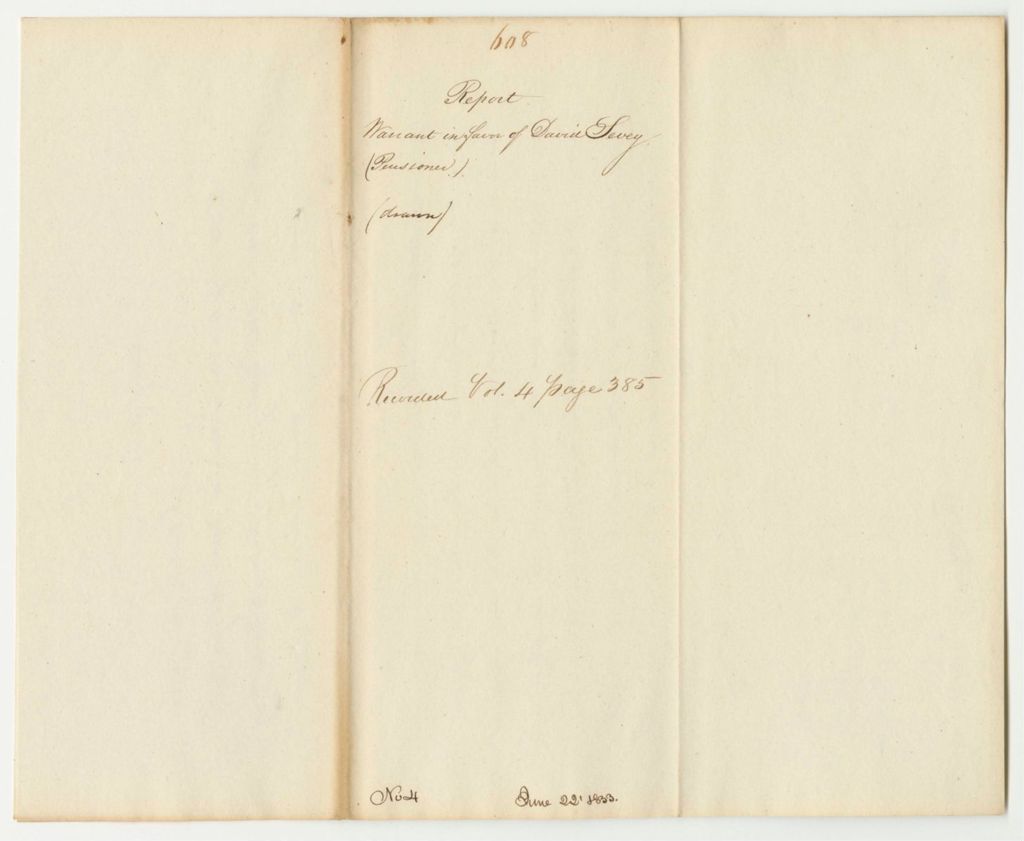 608
Report
Warrant in favor of David
(Pensioner).
(drawn)
Recorded Vol. 4 page 385
No 4
June 22' 1833.